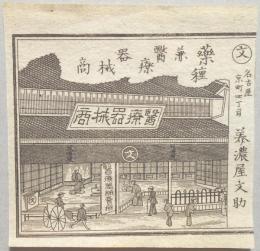 ㊛文
名古屋
京町四丁目
美濃屋文助
藥種
兼醫療器械商
醫療器械商
文